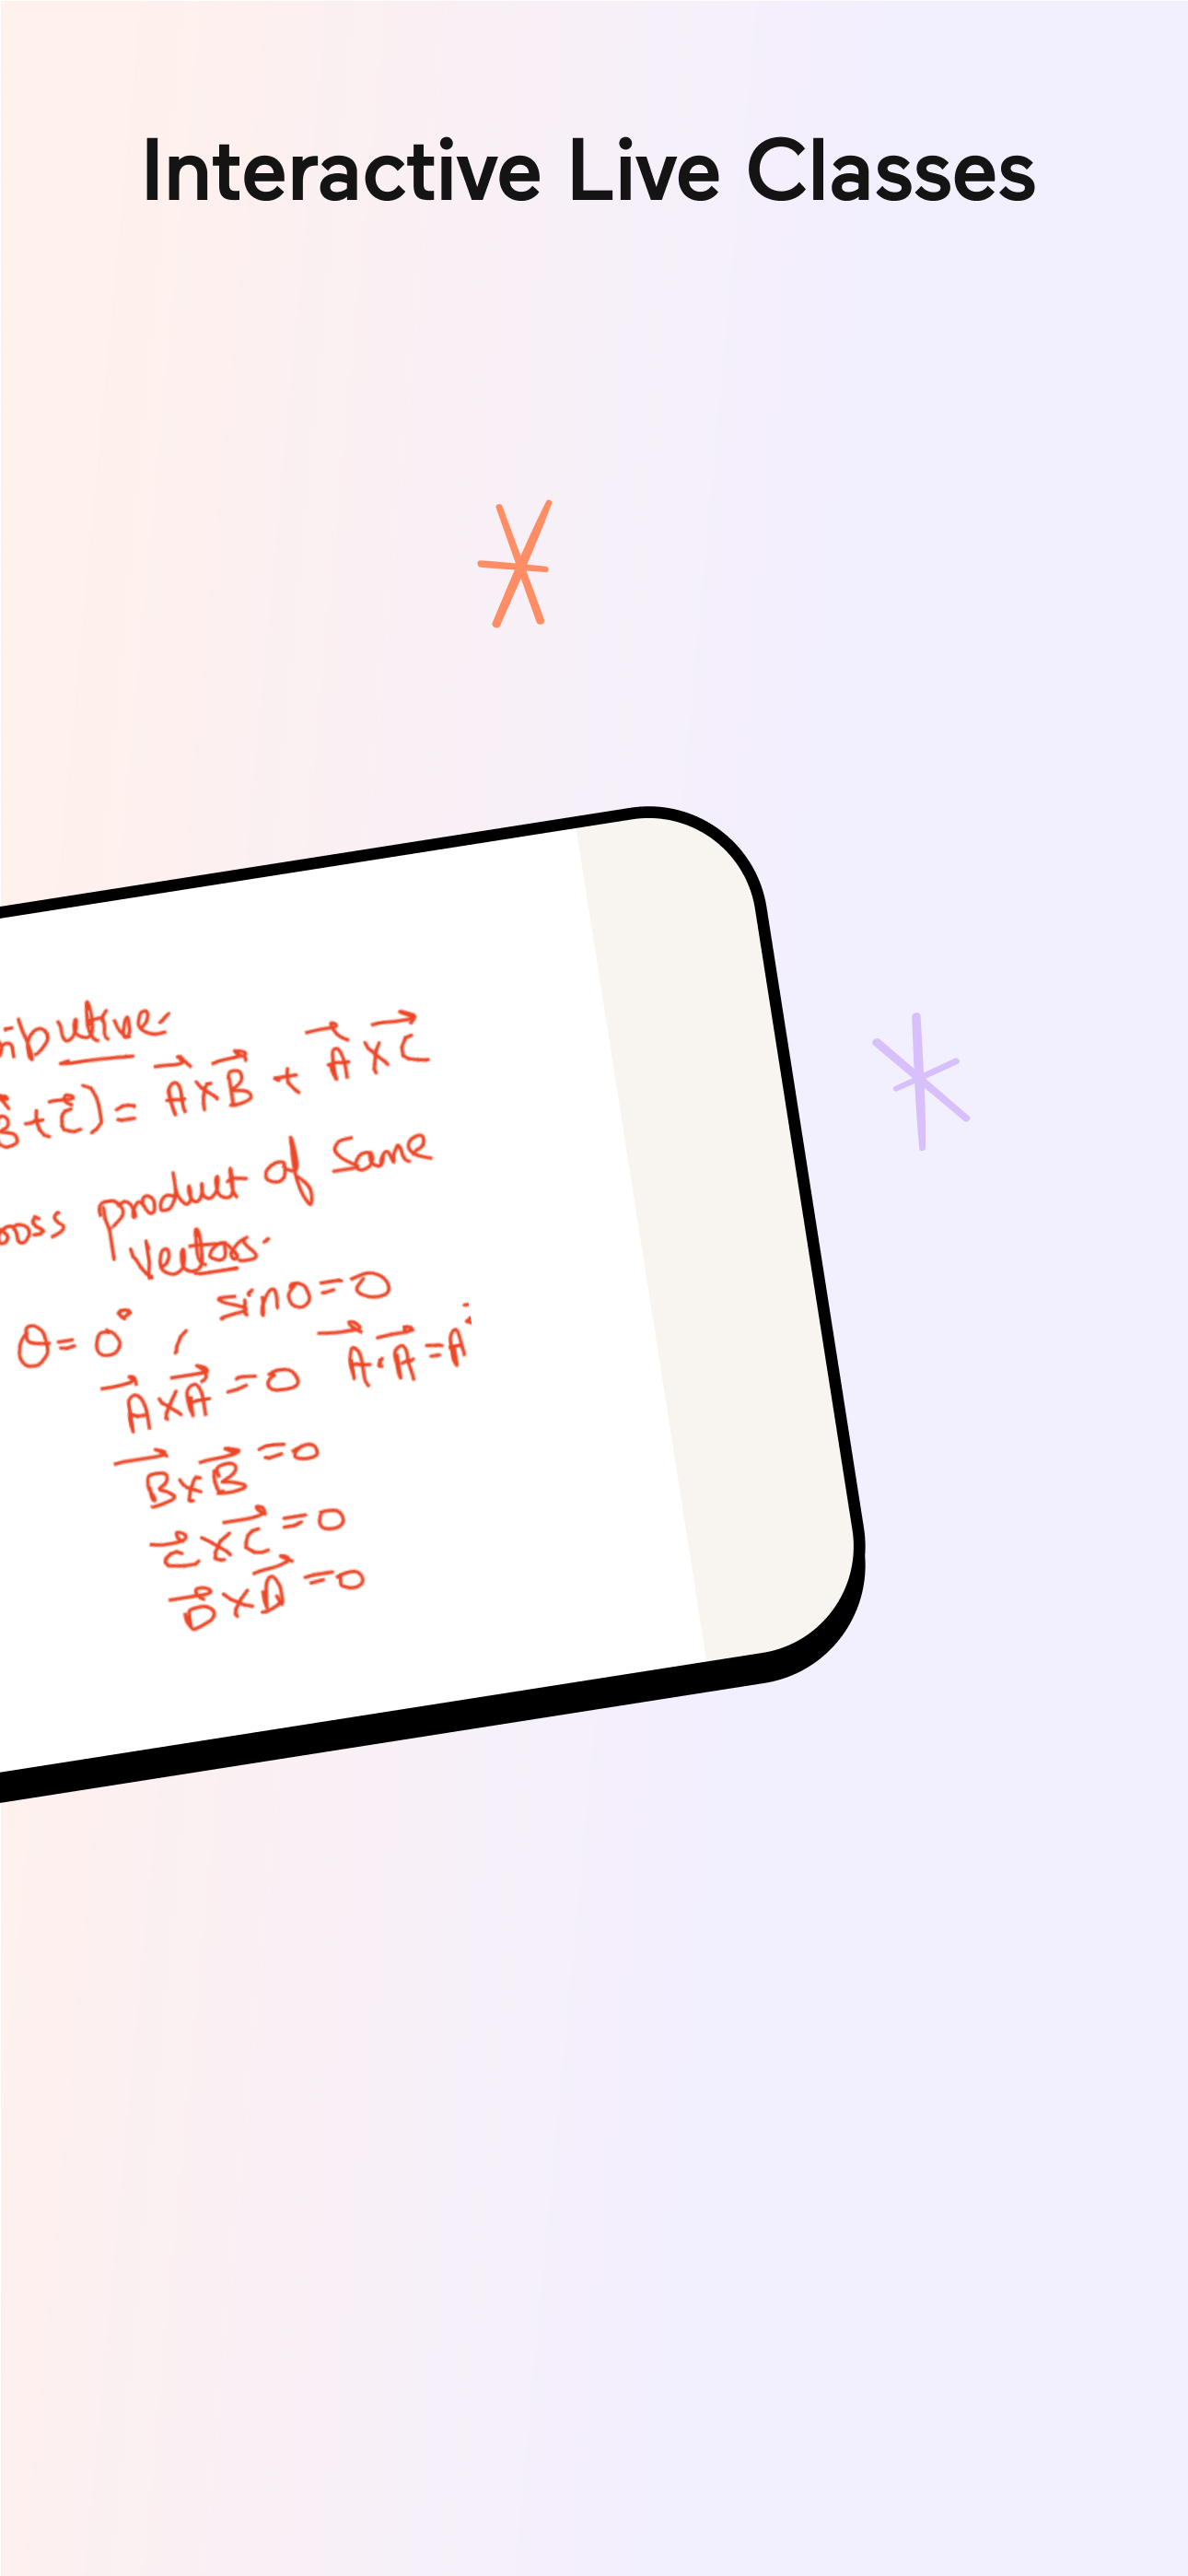 Interactive Live Classes
ributive
B⃗+C⃗) = A⃗×B⃗ + A⃗×C⃗
ross product of Same
Vectors.
θ=0°, sin0=0
A⃗×A⃗=0 A⃗·A⃗=A
B⃗×B⃗=0
C⃗×C⃗=0
D⃗×D⃗=0